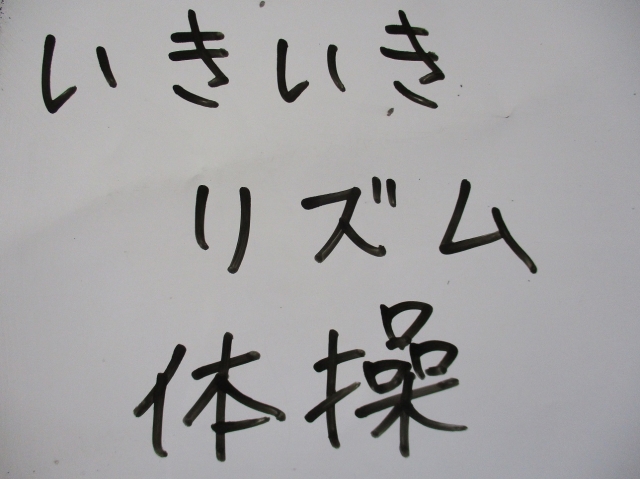 いきいき
リズム
体操